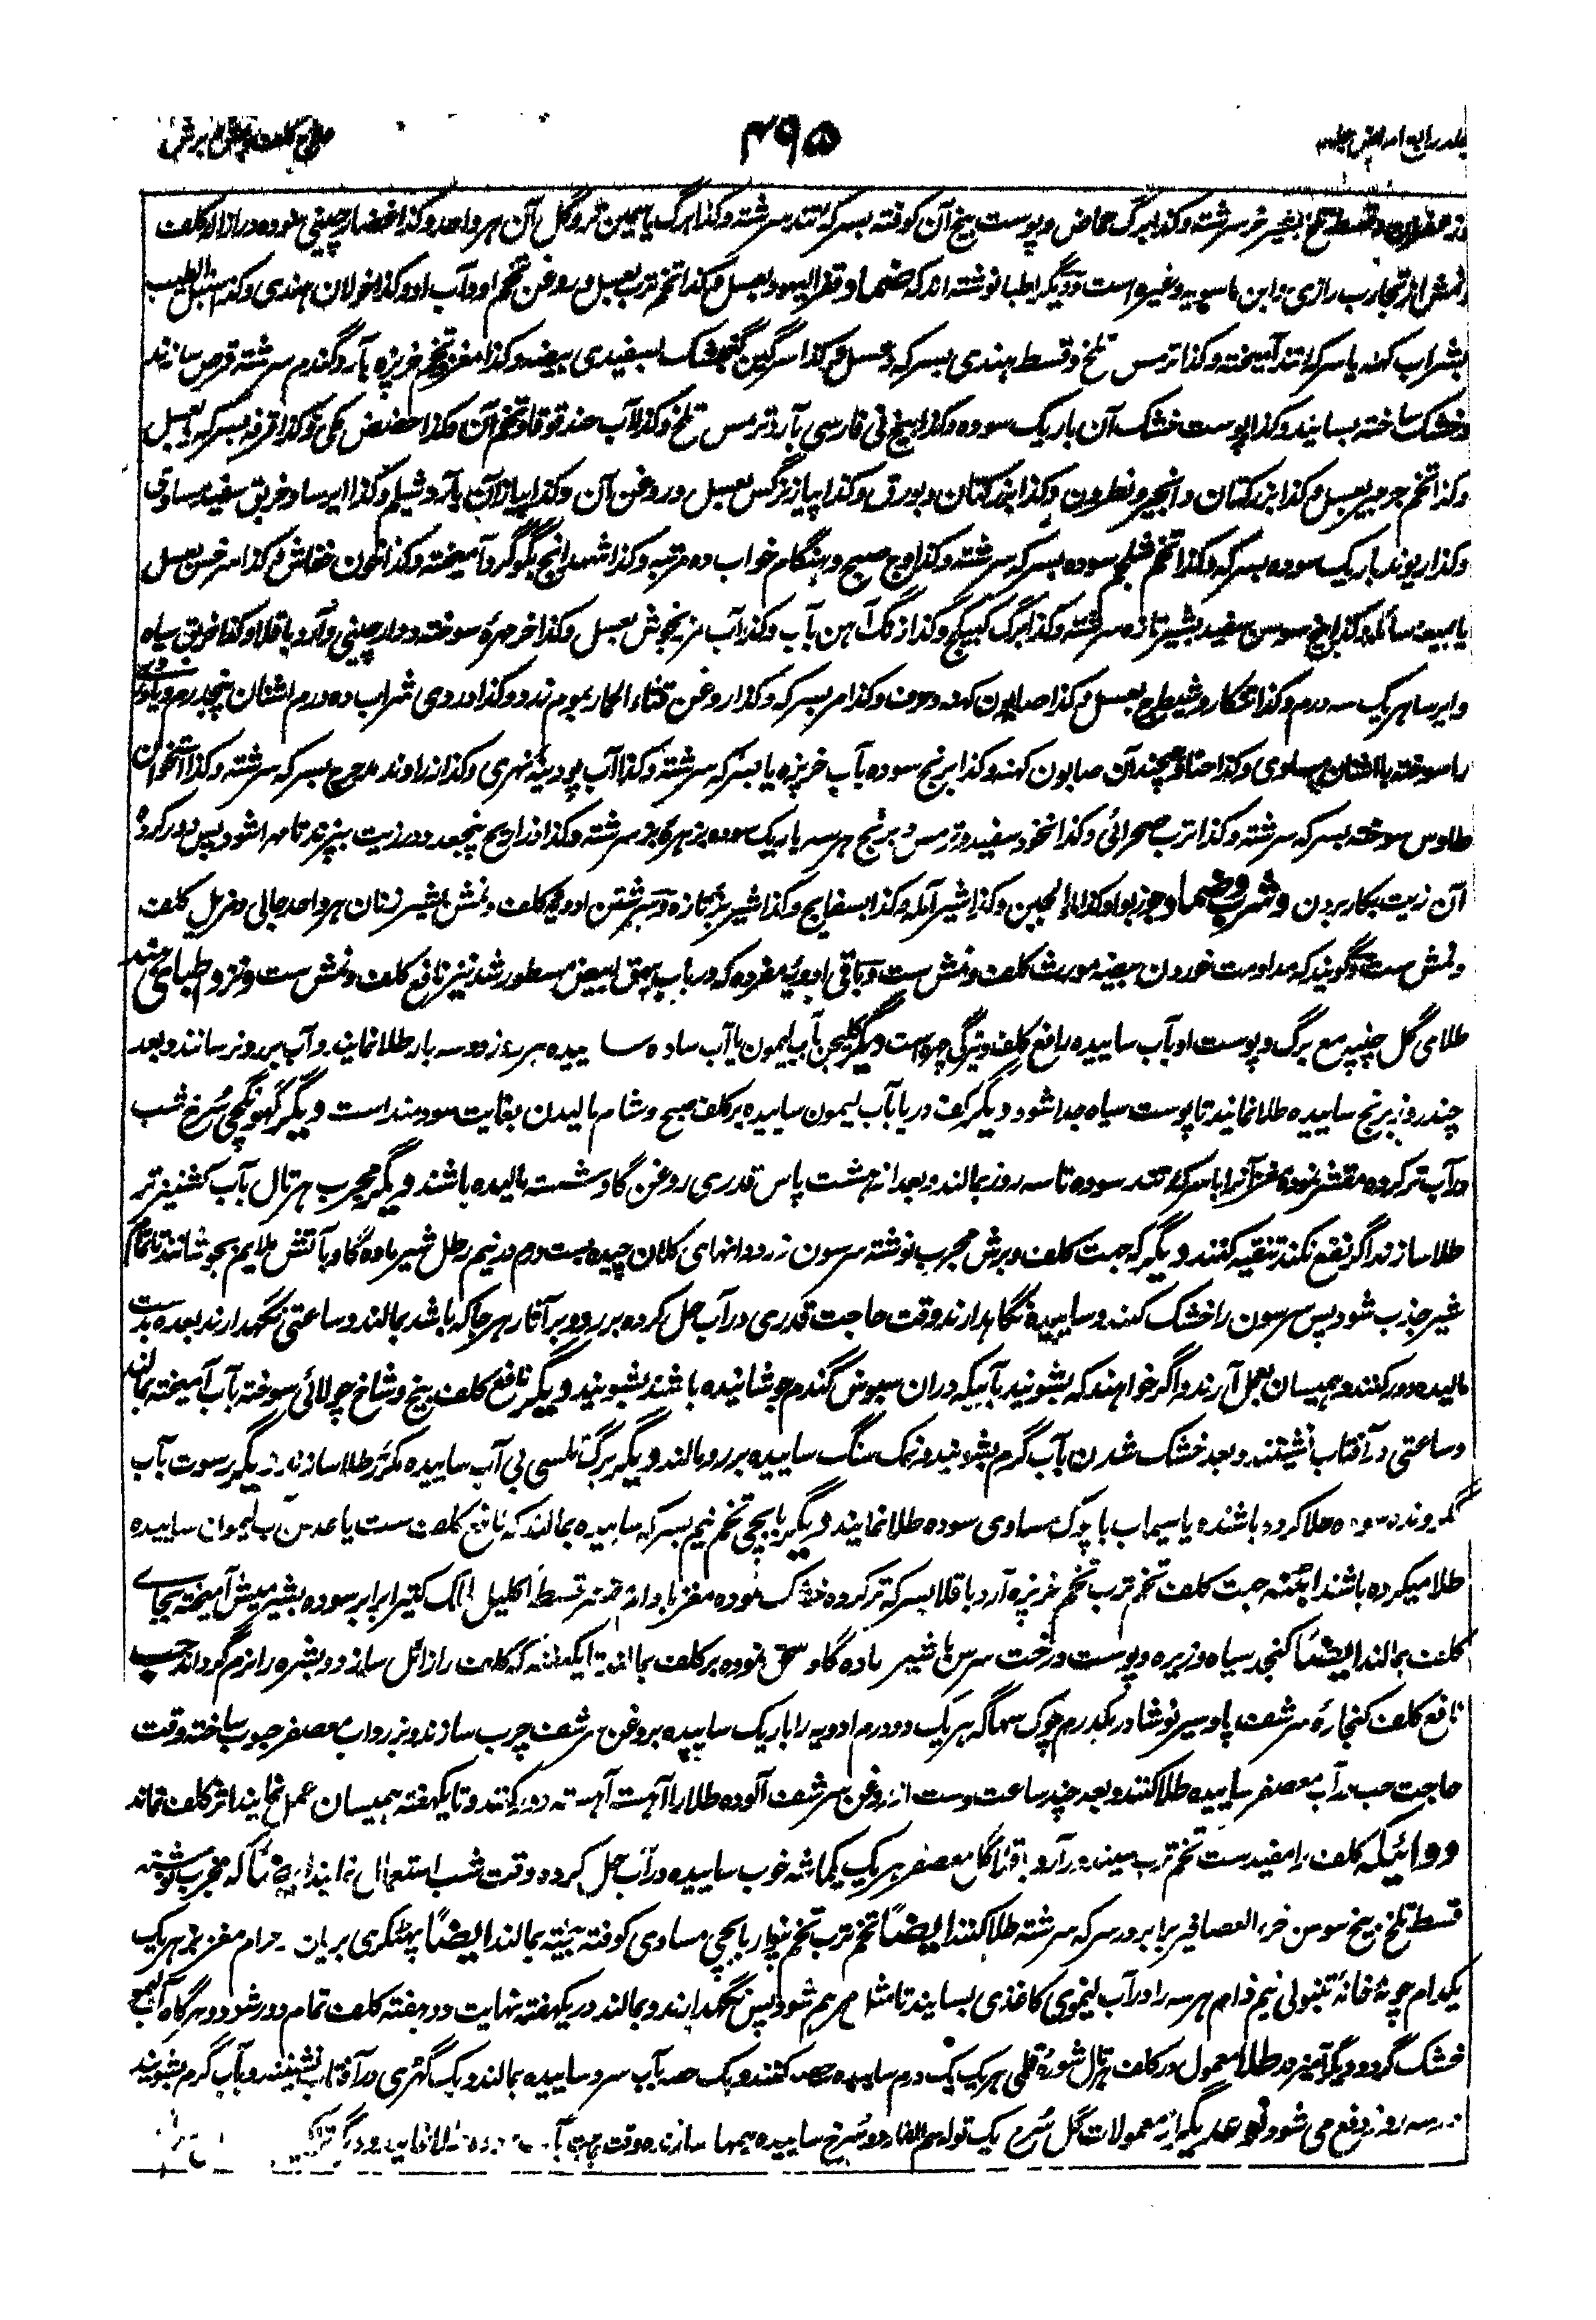 جلد رابع امراض جلد
۴۹۵
علاج کلف و نمش و برش
و قسط تلخ بشیر خر سرشته و کذا برگ حماض و پوست بیخ آن کوفته بسرکه تند سرشته و کذا برگ یاسمین تر و گل آن هر واحد و کذا غضار چینی سوده در ازاله کلف
و نمش از تجارب رازی و ابن ماسویه و غیره است و دیگر اطبا نوشته اند که ضماد قفر الیهود بعسل و کذا تخم ترب بعسل و روغن تخم او و آب او و کذا خولان هندی و کذا سنبل الطیب
بشراب کهنه یا سرکه تند آمیخته و کذا ترمس تلخ و قسط هندی بسرکه و عسل و کذا سرگین گنجشک بسفیدی بیضه و کذا مغز تخم خربزه بآرد گندم سرشته قرص سازند
و خشک ساخته بسایند و کذا پوست خشک آن باریک سوده و کذا بیخ نی فارسی بآرد ترمس تلخ و کذا آب حندقوقا و تخم آن و کذا حضض مکی و کذا قرفه بسرکه یا بعسل
و کذا تخم جرجیر بعسل و کذا بزر کتان و انجیر و نطرون و کذا بزر کتان و بورق و کذا پیاز نرگس بعسل و روغن آن و کذا پیاز آن بآرد شیلم و کذا ایرسا و خربق سفید مساوی
و کذا ریوند باریک سوده بسرکه و کذا تخم شلجم سوده بسرکه سرشته و کذا وج صبح و هنگام خواب ده مرتبه و کذا شهدانج بگوگرد آمیخته و کذا خون خفاش و کذا سرخس بعسل
یا بمیعه سائله و کذا بیخ سوسن سفید بشیر تازه سرشته و کذا برگ کبیکج و کذا زنگ آهن بآب و کذا آب مرزنجوش بعسل و کذا خرمهره سوخته و دارچینی و آرد باقلا و کذا خربق سیاه
و ایرسا هر یک سه درم و کذا تنکار و شیطرج بعسل و کذا صابون کهنه و کذا مر بسرکه و کذا روغن قثاء الحمار بموم زرد و کذا دردی شراب ده درم اشنان پنجدرم
را سوخته با اشنان مساوی و کذا حنا و همچند آن صابون کهنه و کذا برنج سوده بآب خربزه یا بسرکه سرشته و کذا آب پودینه نهری و کذا زراوند مدحرج بسرکه سرشته و کذا استخوان
طاوس سوخته بسرکه سرشته و کذا ترب صحرائی و کذا نخود سفید و ترمس و برنج هر سه باریک سوده بزهره بز سرشته و کذا ذراریح پنجعدد در زیت بپزند تا مهرا شود پس دور کرده
آن زیت بکار بردن و شرب و ضماد جوز بوا و کذا ماءالجبن و کذا شیر آمله و کذا بسفایج و کذا شیر بز تازه و سرشتن ادویه کلف و نمش بشیر زنان هر واحد جالی و مزیل کلف
و نمش ست و گویند که مداومت خوردن بیضه مورث کلف و نمش ست و باقی ادویه مفرده که در باب بهق ابیض مسطور شد نیز نافع کلف و نمش ست و نزد اطبای هند
طلای گل چنپه مع برگ و پوست او بآب ساییده رافع کلف و تیرگی چهره است دیگر کلیجن بآب لیمون یا آب ساده ساییده هر روز دو سه بار طلا نمایند و آب بر رو نرسانند و بعد
چند روز برنج ساییده طلا نمایند تا پوست سیاه جدا شود دیگر کف دریا بآب لیمون ساییده بر کلف صبح و شام مالیدن بغایت سودمند است دیگر گهونگچی سرخ شب
در آب تر کرده مقشر نموده مغز آنرا با سرکه تند سوده تا سه روز بمالند و بعد از هشت پاس قدری روغن گاو شسته مالیده باشند دیگر مجرب هرتال بآب کشنیز تر
طلا سازند اگر نفع نکند تنقیه کنند دیگر که جهت کلف و برش مجرب نوشته سرسون زرد دانهای کلان چیده بست درم در نیم رطل شیر ماده گاو بآتش ملایم بجوشانند تا تمام
غیر جذب شود پس سرسون را خشک کنند و ساییده نگاهدارند وقت حاجت قدری در آب حل کرده بر رو و بر آثار هر جا که باشد بمالند و ساعتی نگهدارند بعده بدست
مالیده دور کنند و همیسان بعمل آرند و اگر خواهند که بشویند بآبیکه در ان سبوس گندم جوشانیده باشند بشویند دیگر نافع کلف بیخ و شاخ چولائی سوخته بآب آمیخته بمالند
و ساعتی در آفتاب نشینند و بعد خشک شدن بآب گرم بشویند و نمک سنگ ساییده بر رو مالند دیگر برگ تلسی بی آب ساییده مکرر طلا سازند دیگر رسوت بآب
سوده طلا کرده باشند یا سیماب با چوک مساوی سوده طلا نمایند دیگر بابچی تخم نیم بسرکه ساییده بمالند که نافع کلف ست یا عدس بآب لیمون ساییده
طلا میکرده باشند ایضاً جهت کلف تخم ترب تخم خربزه آرد باقلا بسرکه تر کرده خشک نموده مغز بادام قسط اکلیل الملک کتیرا برابر سوده بشیر میش آمیخته بجای
کلف بمالند ایضاً کنجد سیاه و زیره و پوست درخت سرس با شیر ماده گاو سحق نموده بر کلف بمالند تا یکهفته که کلف را زائل سازد و بشره را نرم گرداند حب
نافع کلف کنجاره سرشف پاو سیر نوشادر یکدرم چوک سهاگه هر یک دو درم ادویه را باریک ساییده بروغن سرشف چرب سازند و بزرداب معصفر حبوب ساخته وقت
حاجت حب در آب معصفر ساییده طلا کنند و بعد چند ساعت دست از روغن سرشف آلوده طلا را آهسته آهسته دور کنند و تا یکهفته همیسان عمل نمایند اثر کلف نماند
دوائیکه کلف را مفیدست تخم ترب سیندور آرد باقلا گل معصفر هر یک یکماشه خوب ساییده در آب حل کرده وقت شب استعمال نمایند ایضاً که مجرب نوشته
قسط تلخ بیخ سوسن خرء العصافیر برابر در سرکه سرشته طلا کنند ایضاً تخم ترب تخم پنوار بابچی مساوی کوفته بیخته بمالند ایضاً پهٹکری بریان مغز بز هر یک
یکدام چونه خانه تنبولی نیم دام هر سه را در آب لیموی کاغذی بسایند تا مثل مرهم شود پس نگهدارند و بمالند در یکهفته نهایت دو هفته کلف تمام دور شود و هرگاه آب لیمو
خشک گردد دیگر آمیزند طلا معمول در کلف هرتال شوره قلمی هر یک یک درم ساییده حصه کنند و یک حصه بآب سرد ساییده بمالند و یک گهڑی در آفتاب نشینند و بآب گرم بشویند
در سه روز دفع می شود نوع دیگر از معمولات گل سرخ یک توله سم الفار دو سرخ ساییده سازند وقت حاجت بآب سوده طلا نمایند